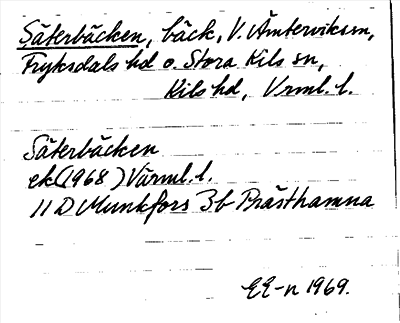 Säterbäcken, bäck, V. Ämterviks sn,
Fryksdals hd o. Stora Kils sn,
Kils hd, Vrml. l.
Säterbäcken
ek (1968) Värml. l.
11 D Munkfors 3b Prästhamna
EE-n 1969.